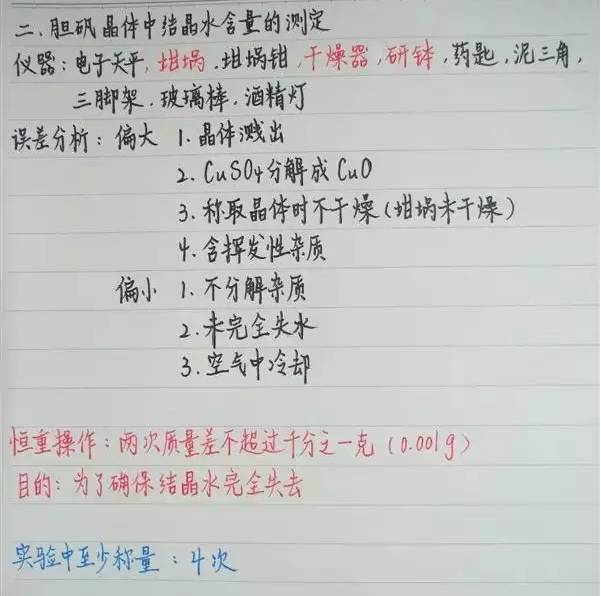 二、胆矾晶体中结晶水含量的测定
仪器：电子天平，坩埚，坩埚钳，干燥器，研钵，药匙，泥三角，
三脚架，玻璃棒，酒精灯
误差分析：偏大 1.晶体溅出
2.CuSO4分解成CuO
3.称取晶体时不干燥（坩埚未干燥）
4.含挥发性杂质
偏小 1.不分解杂质
2.未完全失水
3.空气中冷却
恒重操作：两次质量差不超过千分之一克（0.001g）
目的：为了确保结晶水完全失去
实验中至少称量：4次